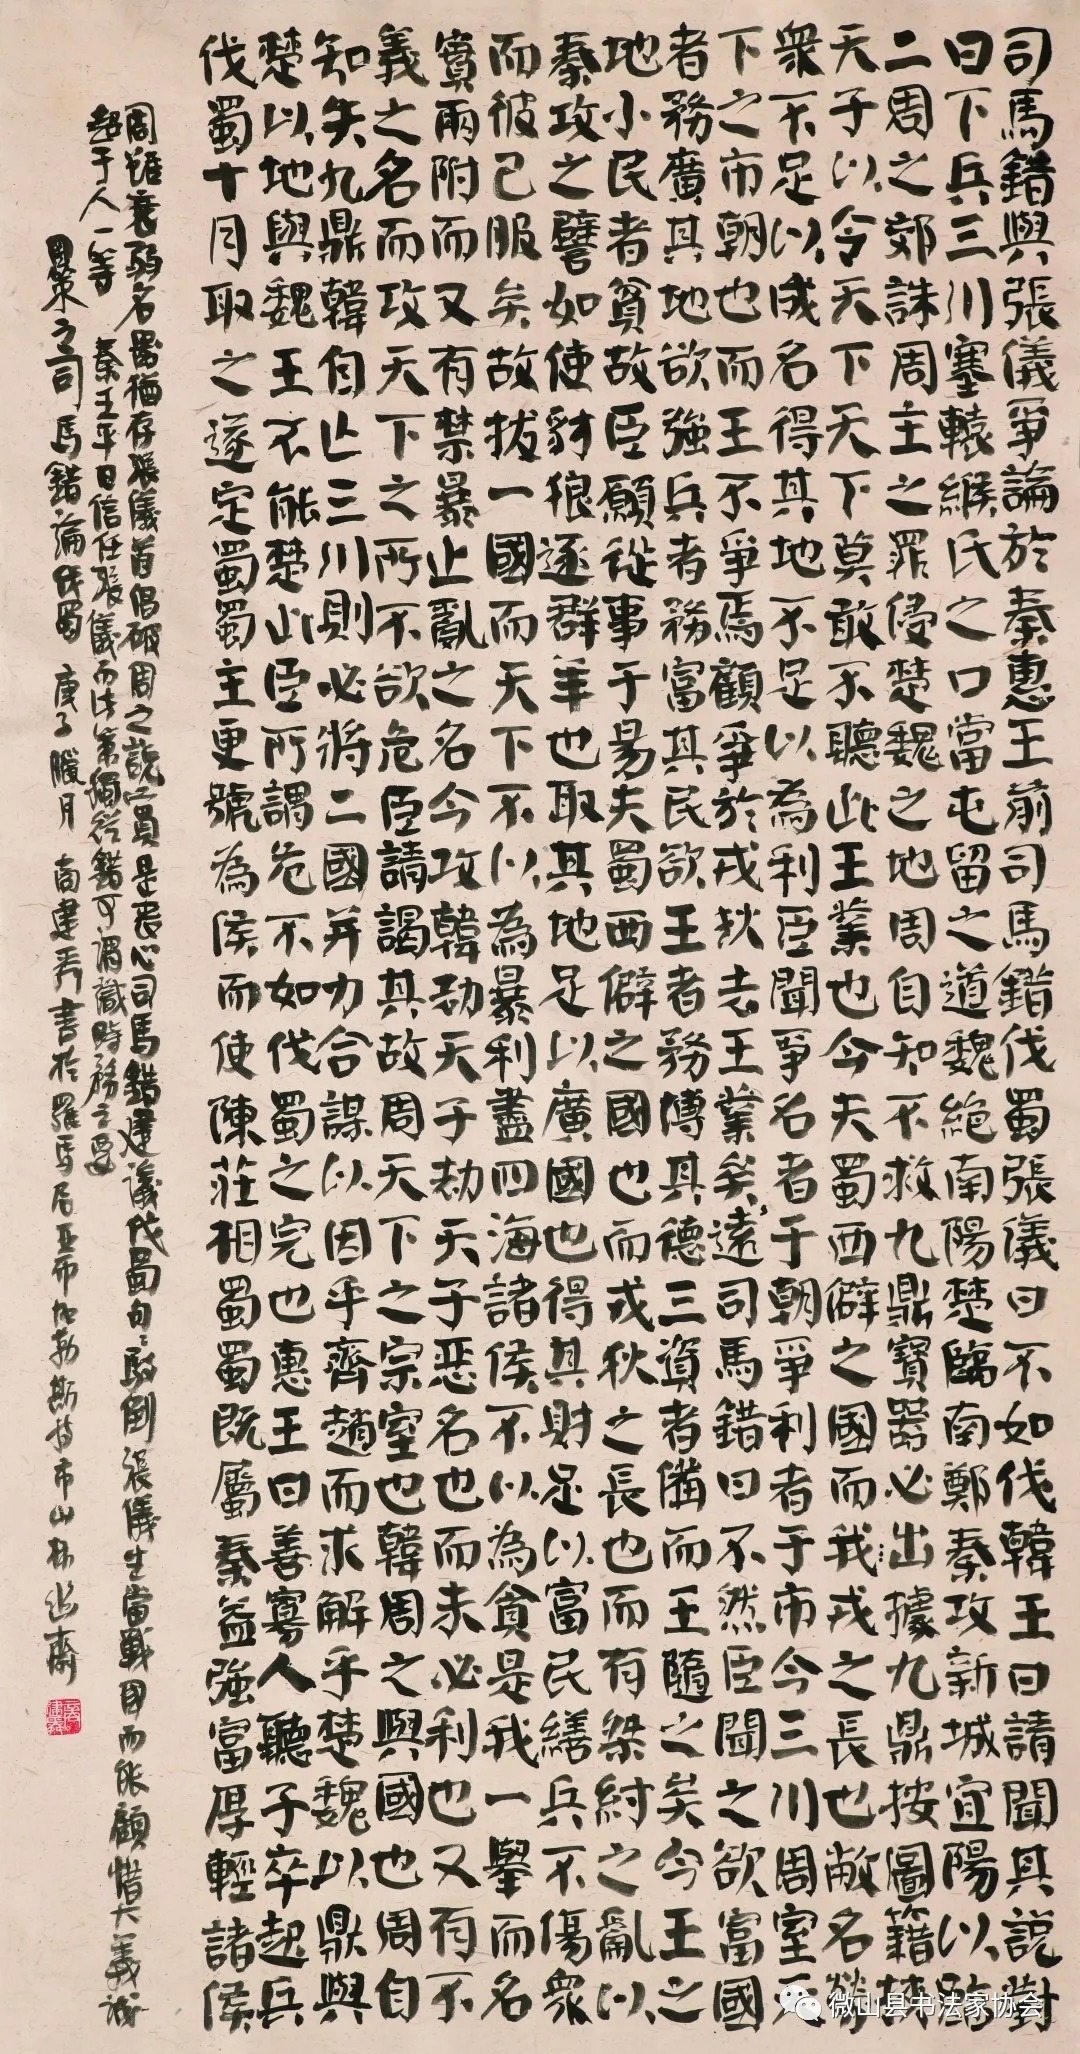 司馬錯與張儀爭論於秦惠王前司馬錯伐蜀張儀曰不如伐韓王曰請聞其說對
曰下兵三川塞轘緱氏之口當屯留之道魏絕南陽楚臨南鄭秦攻新城宜陽以臨
二周之郊誅周主之罪侵楚魏之地周自知不救九鼎寶器必出據九鼎按圖籍挾
天子以令天下天下莫敢不聽此王業也今夫蜀西僻之國而我戎之長也敝名勞
衆不足以成名得其地不足以為利臣聞爭名者于朝爭利者于市今三川周室天
下之市朝也而王不爭焉顧爭於戎狄去王業矣遠司馬錯曰不然臣聞之欲富國
者務廣其地欲強兵者務富其民欲王者務博其德三資者備而王隨之矣今王之
地小民者貧故臣願從事于易夫蜀西僻之國也而戎狄之長也而有桀紂之亂以
秦攻之譬如使豺狼逐群羊也取其地足以廣國也得其財足以富民繕兵不傷衆
而彼已服矣故拔一國而天下不以為暴利盡四海諸侯不以為貪是我一舉而名
實兩附而又有禁暴止亂之名今攻韓劫天子劫天子惡名也而未必利也又有不
義之名而攻天下之所不欲危臣請謁其故周天下之宗室也韓周之與國也周自
知失九鼎韓自亡三川則必將二國并力合謀以因乎齊趙而求解乎楚魏以鼎與
楚以地與魏王不能楚此臣所謂危不如伐蜀之完也惠王曰善寡人聽子卒起兵
伐蜀十月取之遂定蜀蜀主更號為侯而使陳莊相蜀蜀既屬秦益強富厚輕諸侯
周雖衰弱名器猶存張儀首倡破周之說實是喪心司馬錯建議伐蜀句句駁倒張儀生當戰國而能顧惜大義誠
超于人一等 秦王平日信任張儀而此策獨從錯可謂識時務之要
國策之司馬錯論伐蜀 庚子臘月 商建秀書於羅馬居亚布加勒斯特市山林齋
微山县书法家协会